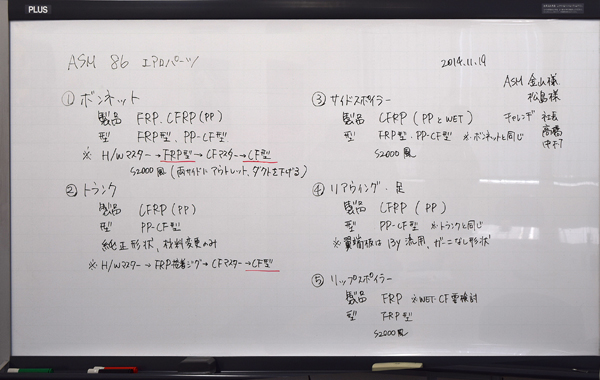 PLUS
ASM 86 エアロパーツ
2014.11.19
ASM 金山様
松島様
チャレンヂ 社長
高橋
① ボンネット
製品 FRP. CFRP (PP)
型 FRP型、PP-CF型
※ H/Wマスター→FRP型→CFマスター→CF型
S2000風 (両サイドにアウトレット、ダクトを下げる)
② トランク
製品 CFRP (PP)
型 PP-CF型
純正形状、材料変更のみ
※ H/Wマスター→FRP接着ジグ→CFマスター→CF型
③ サイドスポイラー
製品 CFRP (PPとWET)
型 FRP型・PP-CF型 ※ボンネットと同じ
S2000風
④ リアウィング・足
製品 CFRP (PP)
型 PP-CF型 ※トランクと同じ
※ 翼端板は 流用、ガーニなし形状
⑤ リップスポイラー
製品 FRP ※WET-CF要検討
型 FRP型
S2000風